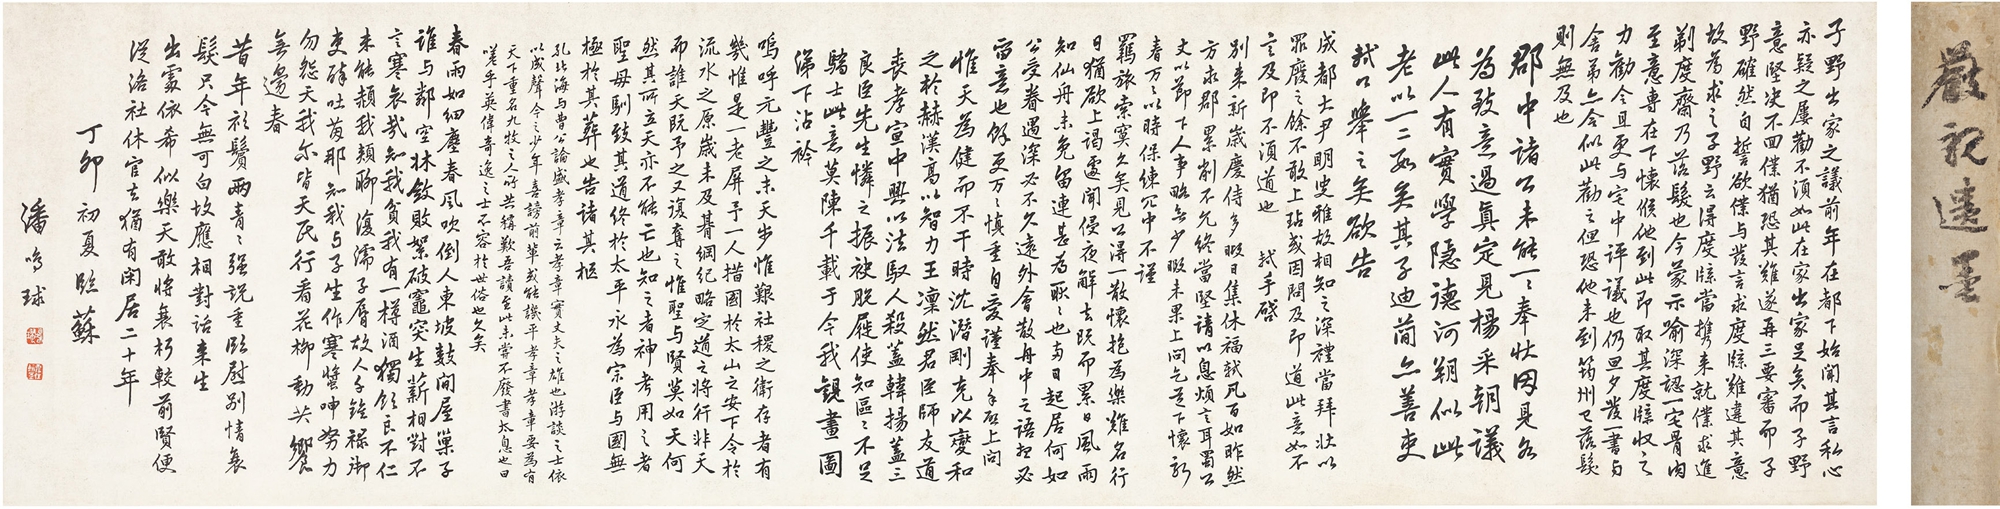 嚴親遺墨
子野出家之議前年在都下始聞其言私心
亦疑之屢勸不須如此在家出家足矣而子野
意堅決不回僕猶恐其難遂再三要審而子
野確然自誓欲僕與發言求度牒難違其意
故為求之子野云得度牒當携来就僕求進
剃度齋乃落髮也今蒙示喻深認一宅骨肉
至意專在下懷候他到此即取其度牒收之
力勸令且更与宅中評議也仍旦夕發一書与
舍弟亦令似此勸之但恐他未到筠州已落髮
則無及也
郡中諸公未能一一奉狀因見各
為致意過真定見楊采朝議
此人有實學隱德河朔似此
老以一二數矣其子迪簡亦善吏
軾以舉之矣欲告
成都大尹明叟雅故相知之深禮當拜狀以
罪廢之餘不敢上玷或因問及即道此意如不
言及即不須道也 軾手啓
別来新歲慶侍多暇日集休福軾凡百如昨然
方求郡累削不允終當堅請以息煩言耳蜀公
丈以節下人事略無少暇未果上問乞道下懷新
春万万以時保練冗中不謹
羈旅索寞久矣見公得一散懷抱為樂難名行
日猶欲上謁遽聞侵夜解去既而累日風雨
知仙舟未免留連甚為耿耿也两日起居何如
公受眷遇深必不久遠外會散舟中之語想必
留意也餘更万万慎重自愛謹奉手啓上問
惟天為健而不干時沈潛剛克以燮和
之於赫漢高以智力王凜然君臣師友道
喪孝宣中興以法馭人殺蓋韓揚蓋三
良臣先生憐之振袂脫屣使知區區不足
驕士此意莫陳千載于今我觀畫圖
涕下沾衿
嗚呼元豐之末天步惟艱社稷之衛存者有
幾惟是一老屏予一人措國於太山之安下令於
流水之原歲未及朞綱紀略定道之將行非天
而誰天既予之又復奪之惟聖与賢莫如天何
然其所立天亦不能亡也知之者神考用之者
聖母馴致其道終於太平永為宗臣与國無
極於其葬也告諸其柩
孔北海与曹公論盛孝章云孝章實丈夫之雄也游談之士依
以成聲今之少年喜謗前輩或能譏平孝章孝章要為有
天下重名九牧之人所共稱歎吾讀至此未嘗不廢書太息也曰
嗟乎英偉奇逸之士不容於世俗也久矣
春雨如細塵春風吹倒人東坡數間屋巢子
誰与鄰空牀斂敗絮破竈突生薪相對不
言寒哀哉知我貧我有一樽酒獨飲良不仁
未能頳我頰聊復濡子脣故人千鍾祿馭
吏醉吐茵那知我与子坐作寒蛩呻努力
勿怨天我尔皆天民行看花柳動共饗
無邊春
昔年於鬢两青青强說重臨慰別情衰
髮只今無可白故應相對話来生
出處依希似樂天敢將衰朽較前賢便
從洛社休官去猶有閑居二十年
丁卯初夏臨蘇
潘鳴球